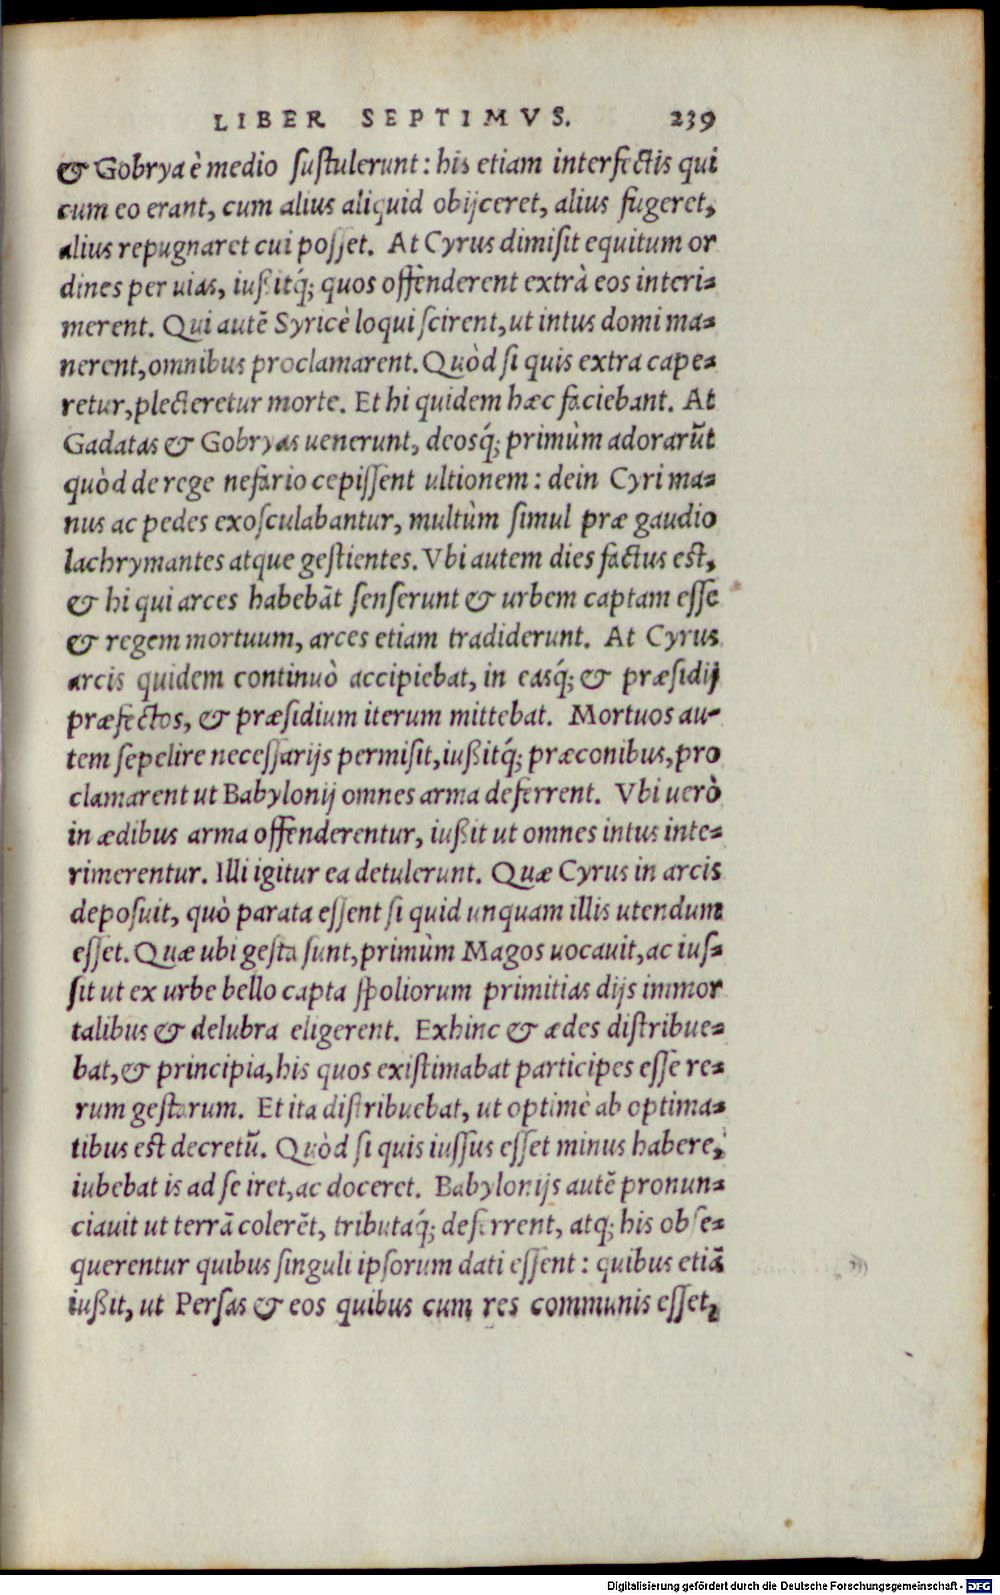 LIBER SEPTIMVS. 239
& Gobrya è medio sustulerunt: his etiam interfectis qui
cum eo erant, cum alius aliquid obijceret, alius fugeret,
alius repugnaret cui posset. At Cyrus dimisit equitum or
dines per uias, iußitq́; quos offenderent extrà eos interi-
merent. Qui autē Syricè loqui scirent, ut intus domi ma-
nerent, omnibus proclamarent. Quòd si quis extra cape-
retur, plecteretur morte. Et hi quidem hæc faciebant. At
Gadatas & Gobryas uenerunt, deosq́; primùm adorarūt
quòd de rege nefario cepissent ultionem: dein Cyri ma-
nus ac pedes exosculabantur, multùm simul præ gaudio
lachrymantes atque gestientes. Vbi autem dies factus est,
& hi qui arces habebāt senserunt & urbem captam esse
& regem mortuum, arces etiam tradiderunt. At Cyrus
arcis quidem continuò accipiebat, in easq́; & præsidij
præfectos, & præsidium iterum mittebat. Mortuos au-
tem sepelire necessarijs permisit, iußitq́; præconibus, pro
clamarent ut Babylonij omnes arma deferrent. Vbi uerò
in ædibus arma offenderentur, iußit ut omnes intus inte-
rimerentur. Illi igitur ea detulerunt. Quæ Cyrus in arcis
deposuit, quò parata essent si quid unquam illis utendum
esset. Quæ ubi gesta sunt, primùm Magos uocauit, ac ius-
sit ut ex urbe bello capta spoliorum primitias dijs immor
talibus & delubra eligerent. Exhinc & ædes distribue-
bat, & principia, his quos existimabat participes esse re-
rum gestarum. Et ita distribuebat, ut optimè ab optima-
tibus est decretū. Quòd si quis iussus esset minus habere,
iubebat is ad se iret, ac doceret. Babylonijs autē pronun-
ciauit ut terrā colerēt, tributaq́; deferrent, atq; his obse-
querentur quibus singuli ipsorum dati essent: quibus etiā
iußit, ut Persas & eos quibus cum res communis esset,
Digitalisierung gefördert durch die Deutsche Forschungsgemeinschaft - DFG